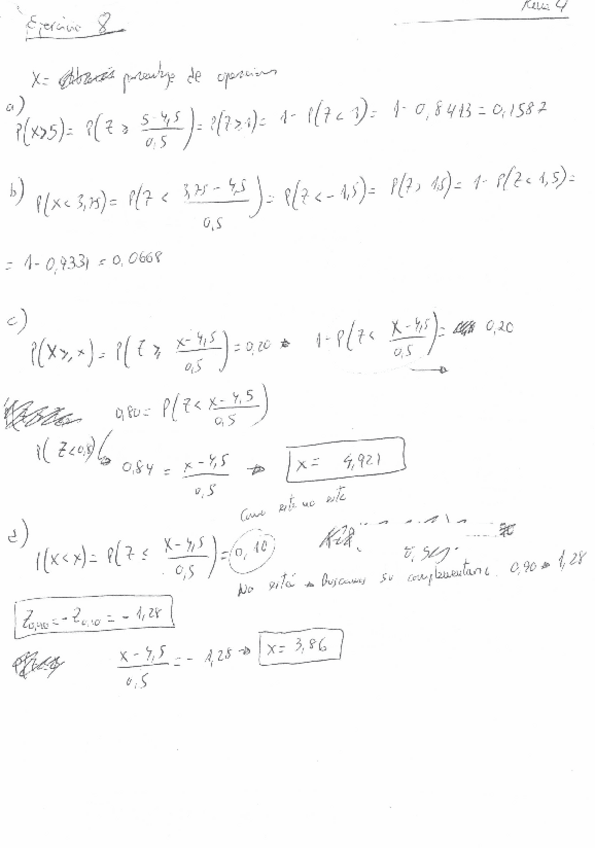 Ejercicio 8
X= porcentaje de
a)
P(X>5)= P(Z ≥ (5-4,5)/0,5)= P(Z≥1)= 1-P(Z<1)= 1-0,8413=0,1587
b) P(X<3,75)= P(Z < (3,75-4,5)/0,5)= P(Z<-1,5)= P(Z> 1,5)= 1-P(Z<1,5)=
= 1-0,9331=0,0668
c)
P(X≥x)= P(Z ≥ (x-4,5)/0,5)=0,20 → 1-P(Z< (x-4,5)/0,5)= 0,20
0,80= P(Z< (x-4,5)/0,5)
P(Z<0,8)
0,84 = (x-4,5)/0,5 → x= 4,921
Como este no esta
d)
P(X<x)= P(Z ≤ (x-4,5)/0,5)= 0,10
No está → Buscamos su complementario. 0,90 → 1,28
= - 1,28
(x-4,5)/0,5 = - 1,28 → x= 3,86